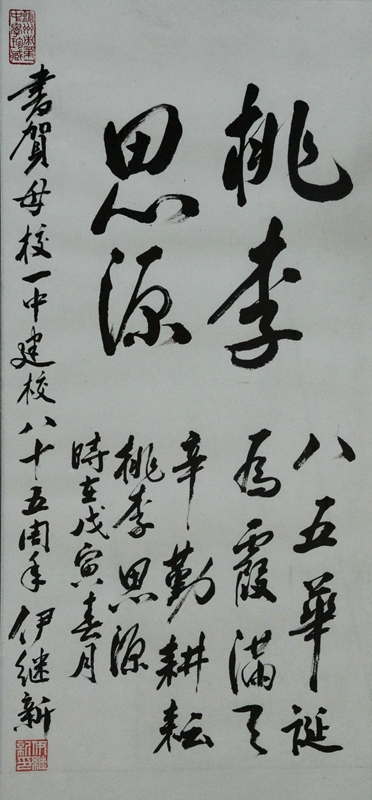 桃李
思源
八五華誕
為霞滿天
辛勤耕耘
桃李思源
時在戊寅春月
書賀母校一中建校八十五周年 伊继新